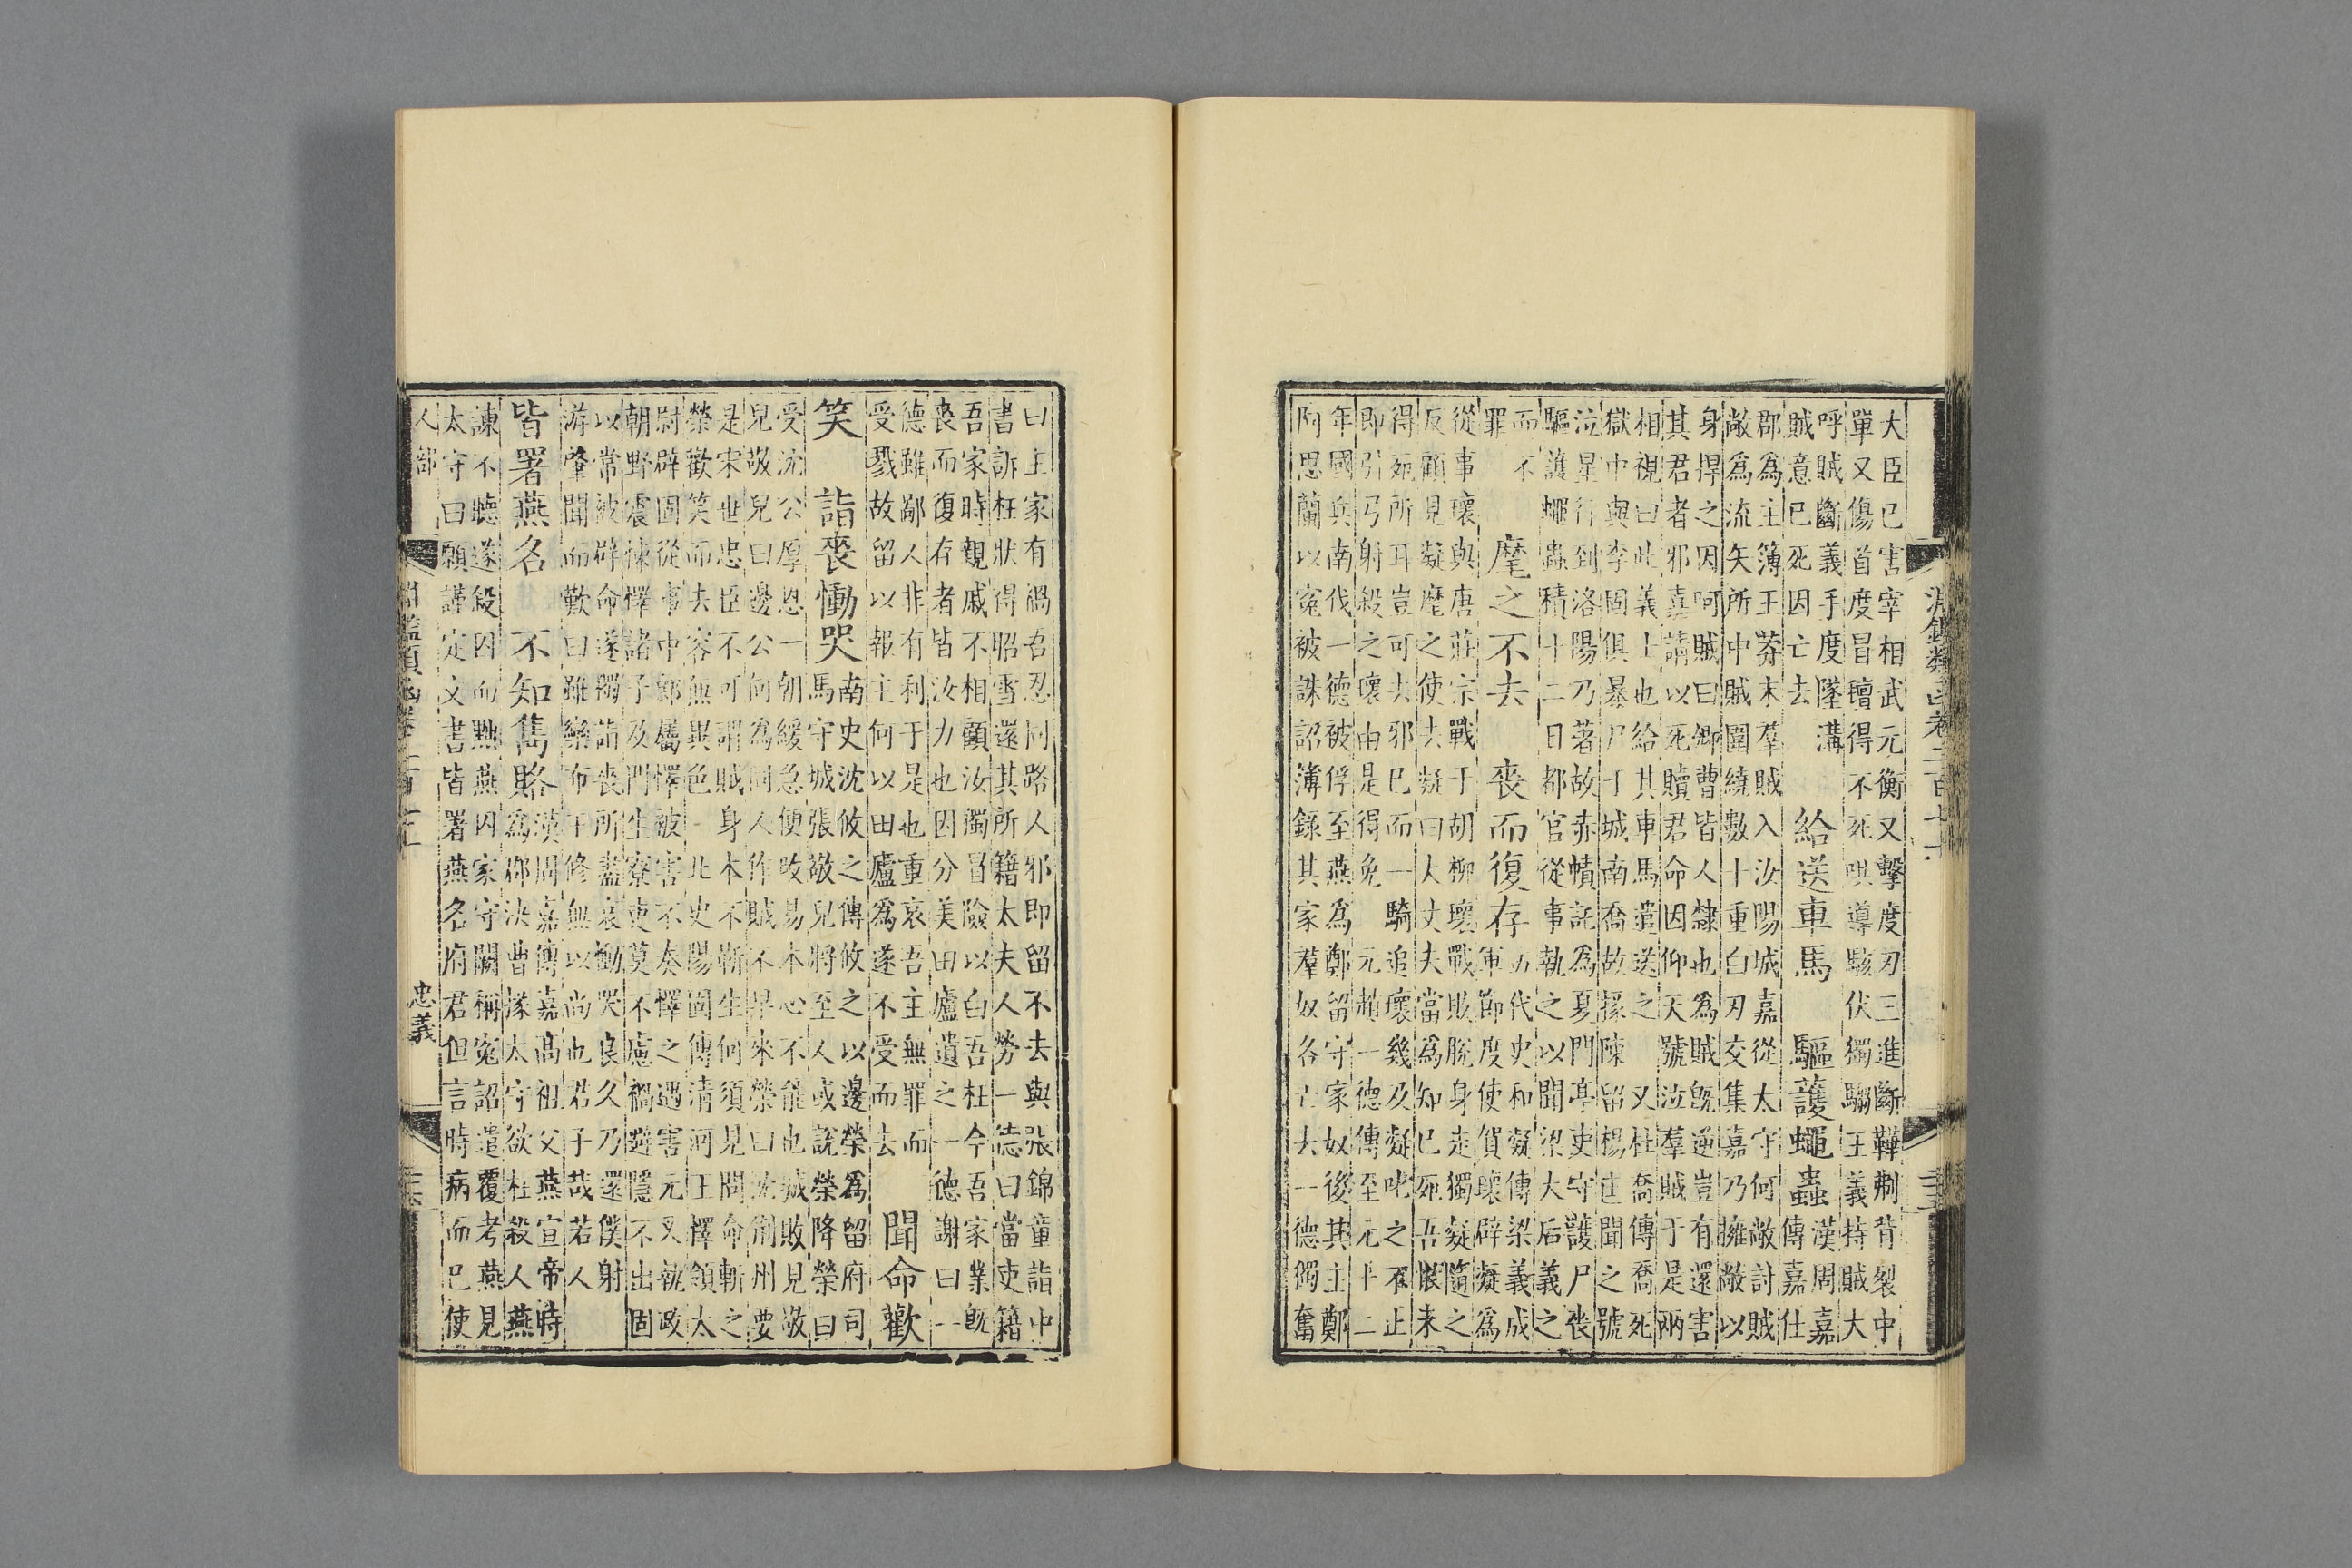 淵鑑類函卷二百七十六
大臣已害宰相武元衡又擊度刃三進斷鞾刜背裂中
單又傷首度冒氊得不死哄導駭伏獨騶王義持賊大
呼賊斷義手度墜溝
賊意已死因亡去
給送車馬 驅護蠅蟲
漢周嘉
傳嘉仕
郡為主簿王莽末羣賊入汝陽城嘉從太守何敞討賊
敞為流矢所中賊圍繞數十重白刃交集嘉乃擁敞以
身捍之因呵賊曰卿曹皆人隸也為賊旣逆豈有還害
其君者邪嘉請以死贖君命因仰天號泣羣賊于是兩
相視曰此義士也給其車馬遣送之 又杜喬傳喬死
獄中與李固俱暴尸于城南喬故掾陳留楊匡聞之號
泣星行到洛陽乃著故赤幘託為夏門亭吏守護尸喪
驅護蠅蟲積十二日都官從事執之以聞梁大后義之
而不
罪
麾之不去 喪而復存
五代史和凝傳梁義成
軍節度使賀瓌辟凝為
從事瓌與唐莊宗戰于胡柳瓌戰敗脫身走獨凝隨之
反顧見凝麾之使去凝曰大丈夫當為知已死吾恨未
得死所耳豈可去邪已而一騎追瓌幾及凝叱之不止
即引弓射殺之瓌由是得免 元趙一德傳至元十二
年國兵南伐一德被俘至燕為鄭留守家奴後其主鄭
阿思蘭以冤被誅詔簿錄其家羣奴各亡去一德獨奮
曰上家有禍吾忍同路人邪即留不去與張錦童詣中
書訴枉狀得昭雪還其所籍太夫人勞一德曰當吏籍
吾家時親戚不相顧汝獨冒險以白吾枉今吾家業旣
喪而復存者皆汝力也因分美田廬遺之一德謝曰一
德雖鄙人非有利于是也重哀吾主無罪而
受戮故留以報主何以田廬爲遂不受而去
聞命歡
笑 詣喪慟哭
南史沈攸之傳攸之以邊榮為留府司
馬守城張敬兒將至人或說榮降榮曰
受沈公厚恩一朝緩急便改易本心不能也城敗見敬
兒敬兒曰邊公何為同人作賊不早來榮曰沈荊州要
是宋世忠臣不可謂賊身本不蘄生何須見問命斬之
榮歡笑而去容無異色 北史陽固傳清河王懌領太
尉辟固從事中郎屬懌被害不奏懌之遇害元叉執政
朝野震悚懌諸子及門生寮吏莫不慮禍避隱不出固
以常被辟命遂獨詣喪所盡哀慟哭良久乃還僕射
游肇聞而歎曰雖欒布王修無以尚也君子哉若人
皆署燕名 不知雋賂
漢周嘉傳嘉高祖父燕宣帝時
為郡決曹掾太守欲枉殺人燕
諫不聽遂殺囚而黜燕囚家守闕稱冤詔遣覆考燕見
太守曰願謹定文書皆署燕名府君但言時病而已使
人部 忠義